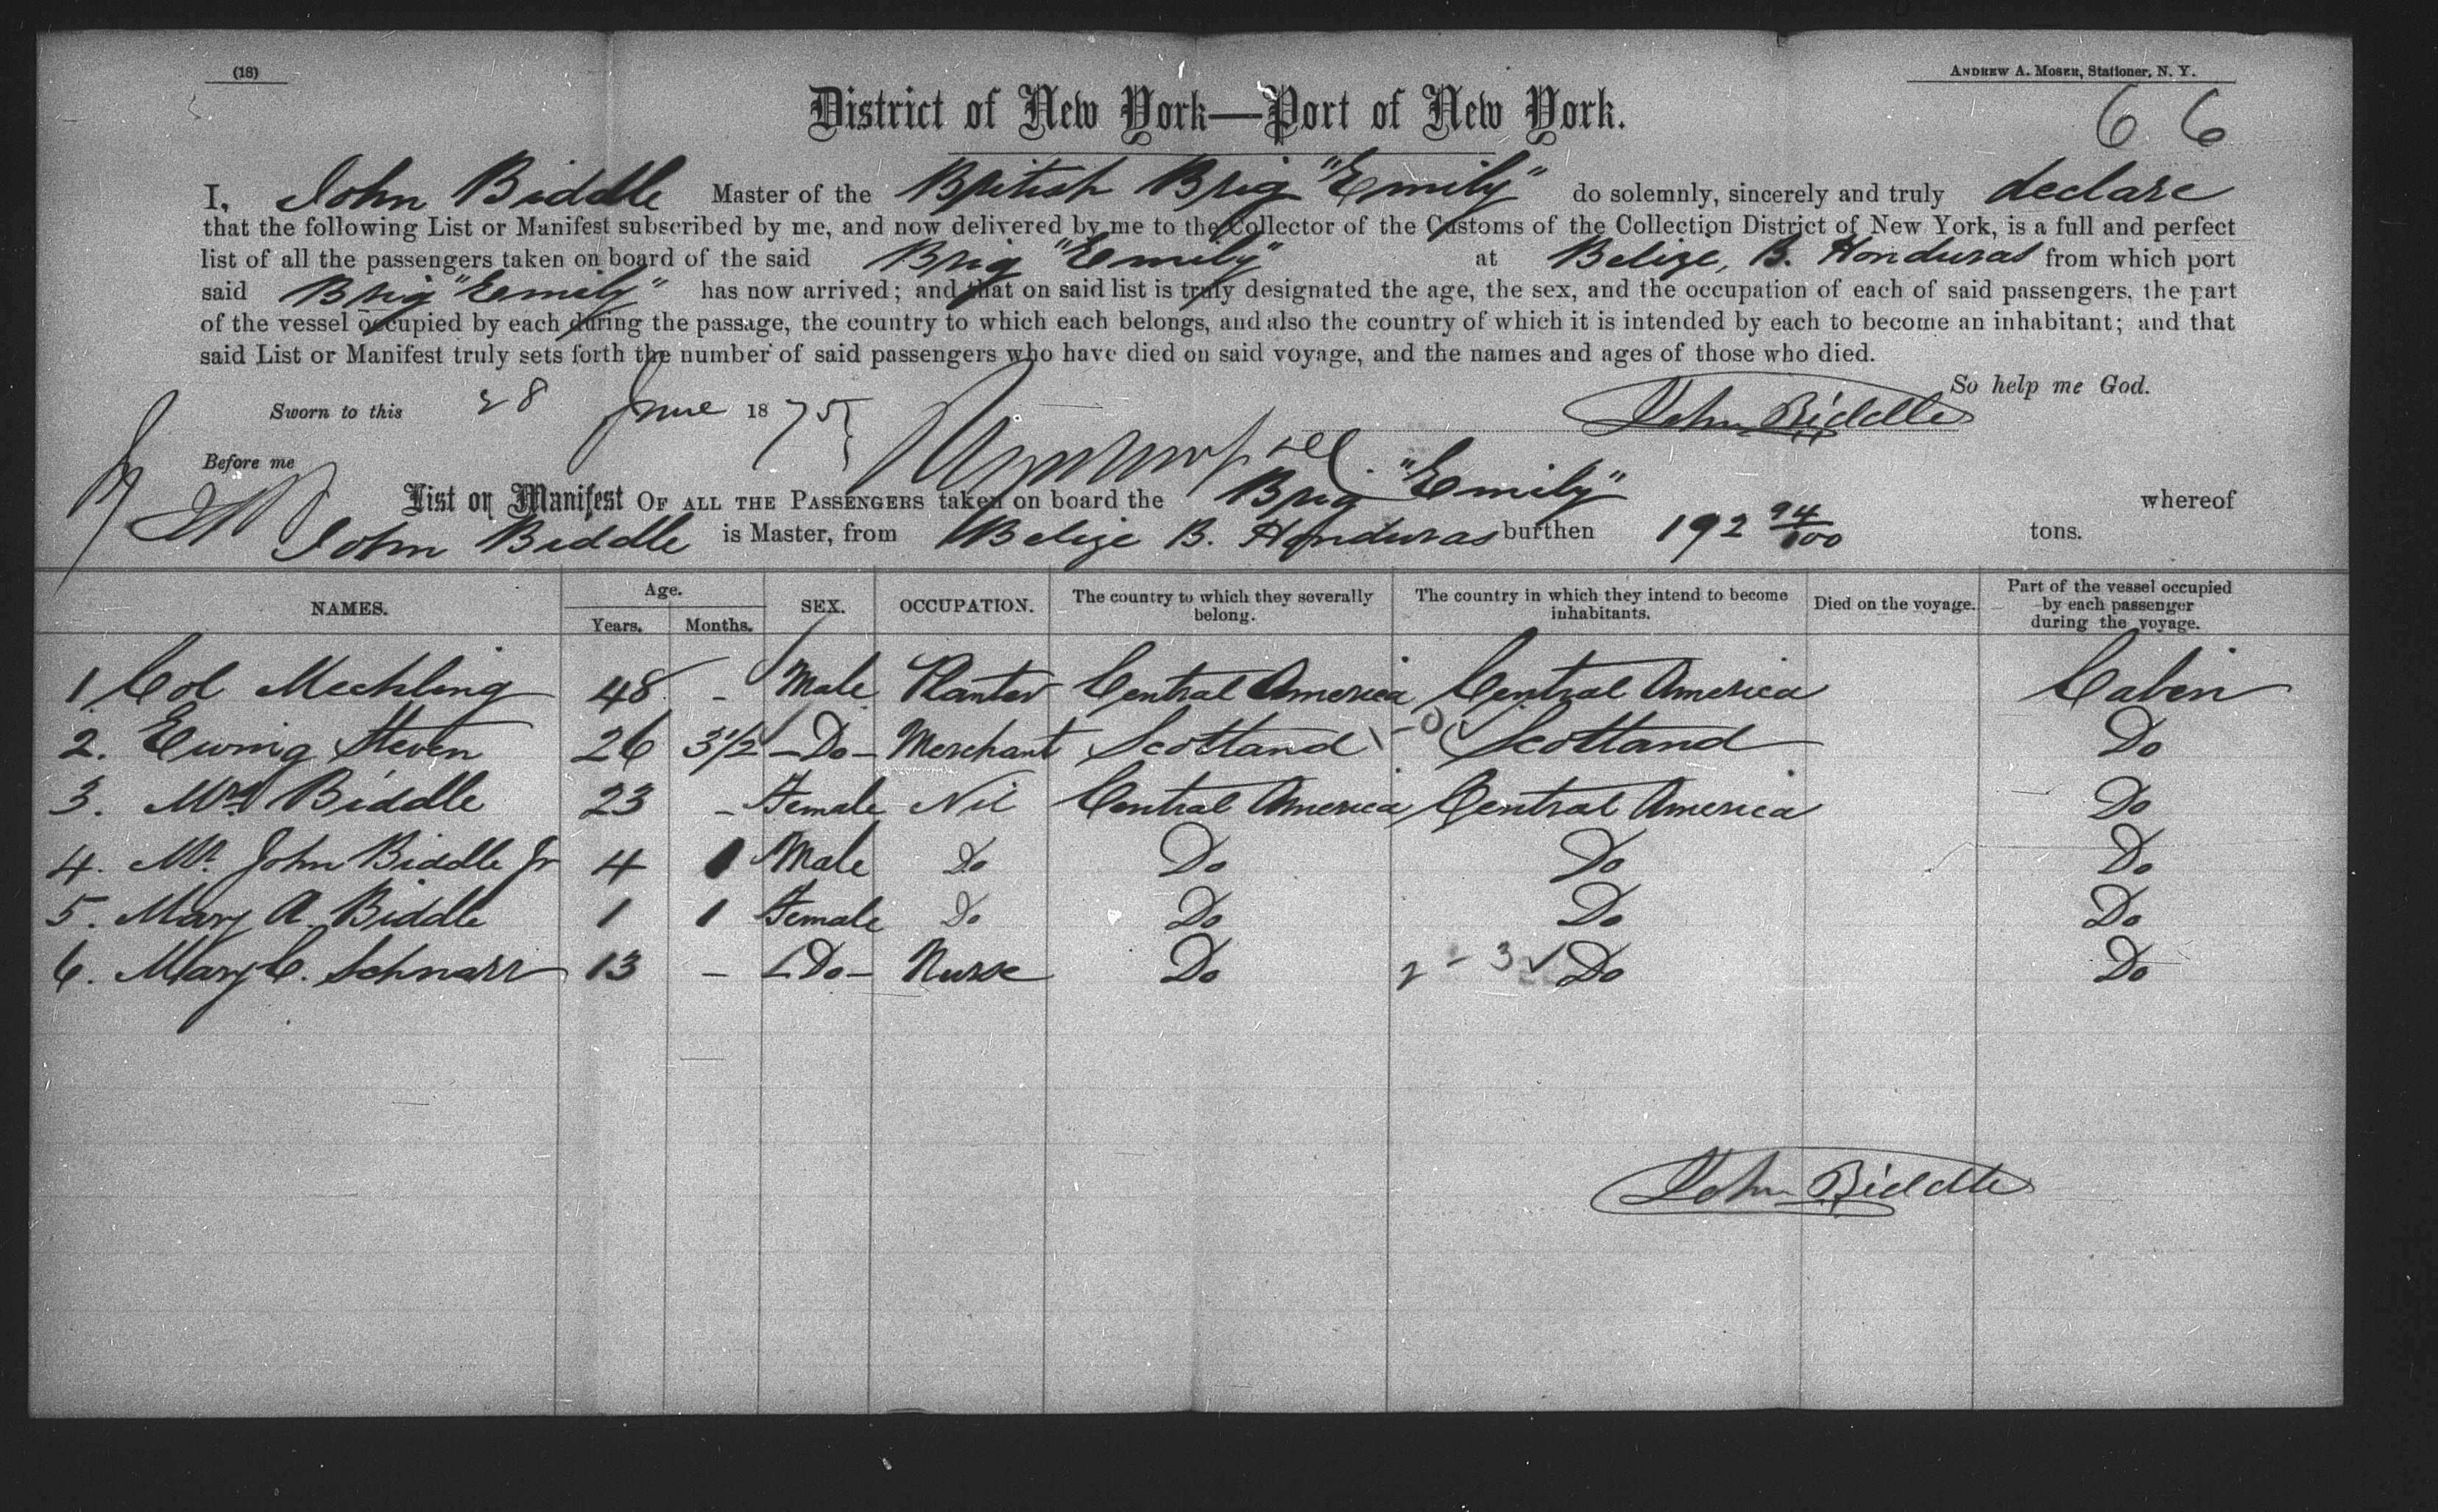 (18)
ANDREW A. MOSER, Stationer, N. Y.
District of New York—Port of New York.
6 6
I, John Biddle Master of the British Brig "Emily" do solemnly, sincerely and truly declare
that the following List or Manifest subscribed by me, and now delivered by me to the Collector of the Customs of the Collection District of New York, is a full and perfect
list of all the passengers taken on board of the said Brig "Emily" at Belize, B. Honduras from which port
said Brig "Emily" has now arrived; and that on said list is truly designated the age, the sex, and the occupation of each of said passengers, the part
of the vessel occupied by each during the passage, the country to which each belongs, and also the country of which it is intended by each to become an inhabitant; and that
said List or Manifest truly sets forth the number of said passengers who have died on said voyage, and the names and ages of those who died.
So help me God.
Sworn to this 28 June 1875
John Biddle
Before me
List or Manifest OF ALL THE PASSENGERS taken on board the Brig "Emily" whereof
John Biddle is Master, from Belize B. Honduras burthen 192 94/100 tons.
NAMES. Age. Years. Months. SEX. OCCUPATION. The country to which they severally belong. The country in which they intend to become inhabitants. Died on the voyage. Part of the vessel occupied by each passenger during the voyage.
1 Col Mechling 48 - Male Planter Central America Central America Cabin
2. Ewing Steven 26 3 1/2 - Do - Merchant Scotland Scotland Do
3. Mrs Biddle 23 - Female Nil Central America Central America Do
4. Mr. John Biddle Jr 4 1 Male Do Do Do Do
5. Mary A. Biddle 1 1 Female Do Do Do Do
6. Mary C. Schnarr 13 - - Do - Nurse Do Do Do
John Biddle